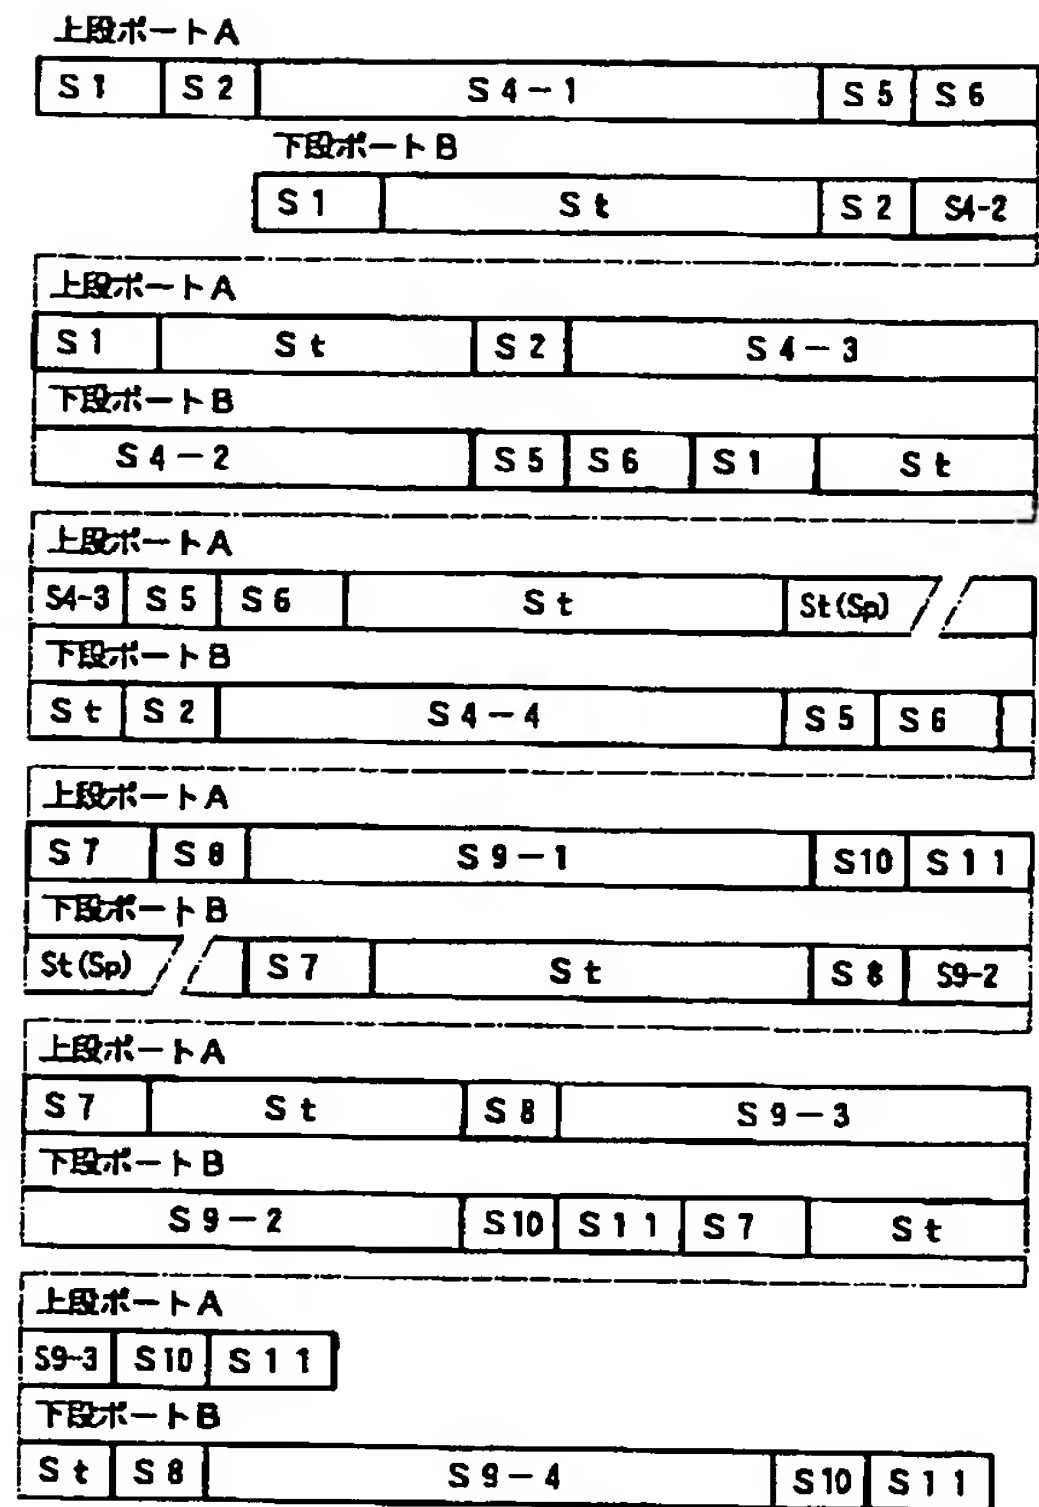 上段ポートA
S1 S2 S4-1 S5 S6
下段ポートB
S1 St S2 S4-2
上段ポートA
S1 St S2 S4-3
下段ポートB
S4-2 S5 S6 S1 St
上段ポートA
S4-3 S5 S6 St St(Sp)
下段ポートB
St S2 S4-4 S5 S6
上段ポートA
S7 S8 S9-1 S10 S11
下段ポートB
St(Sp) S7 St S8 S9-2
上段ポートA
S7 St S8 S9-3
下段ポートB
S9-2 S10 S11 S7 St
上段ポートA
S9-3 S10 S11
下段ポートB
St S8 S9-4 S10 S11